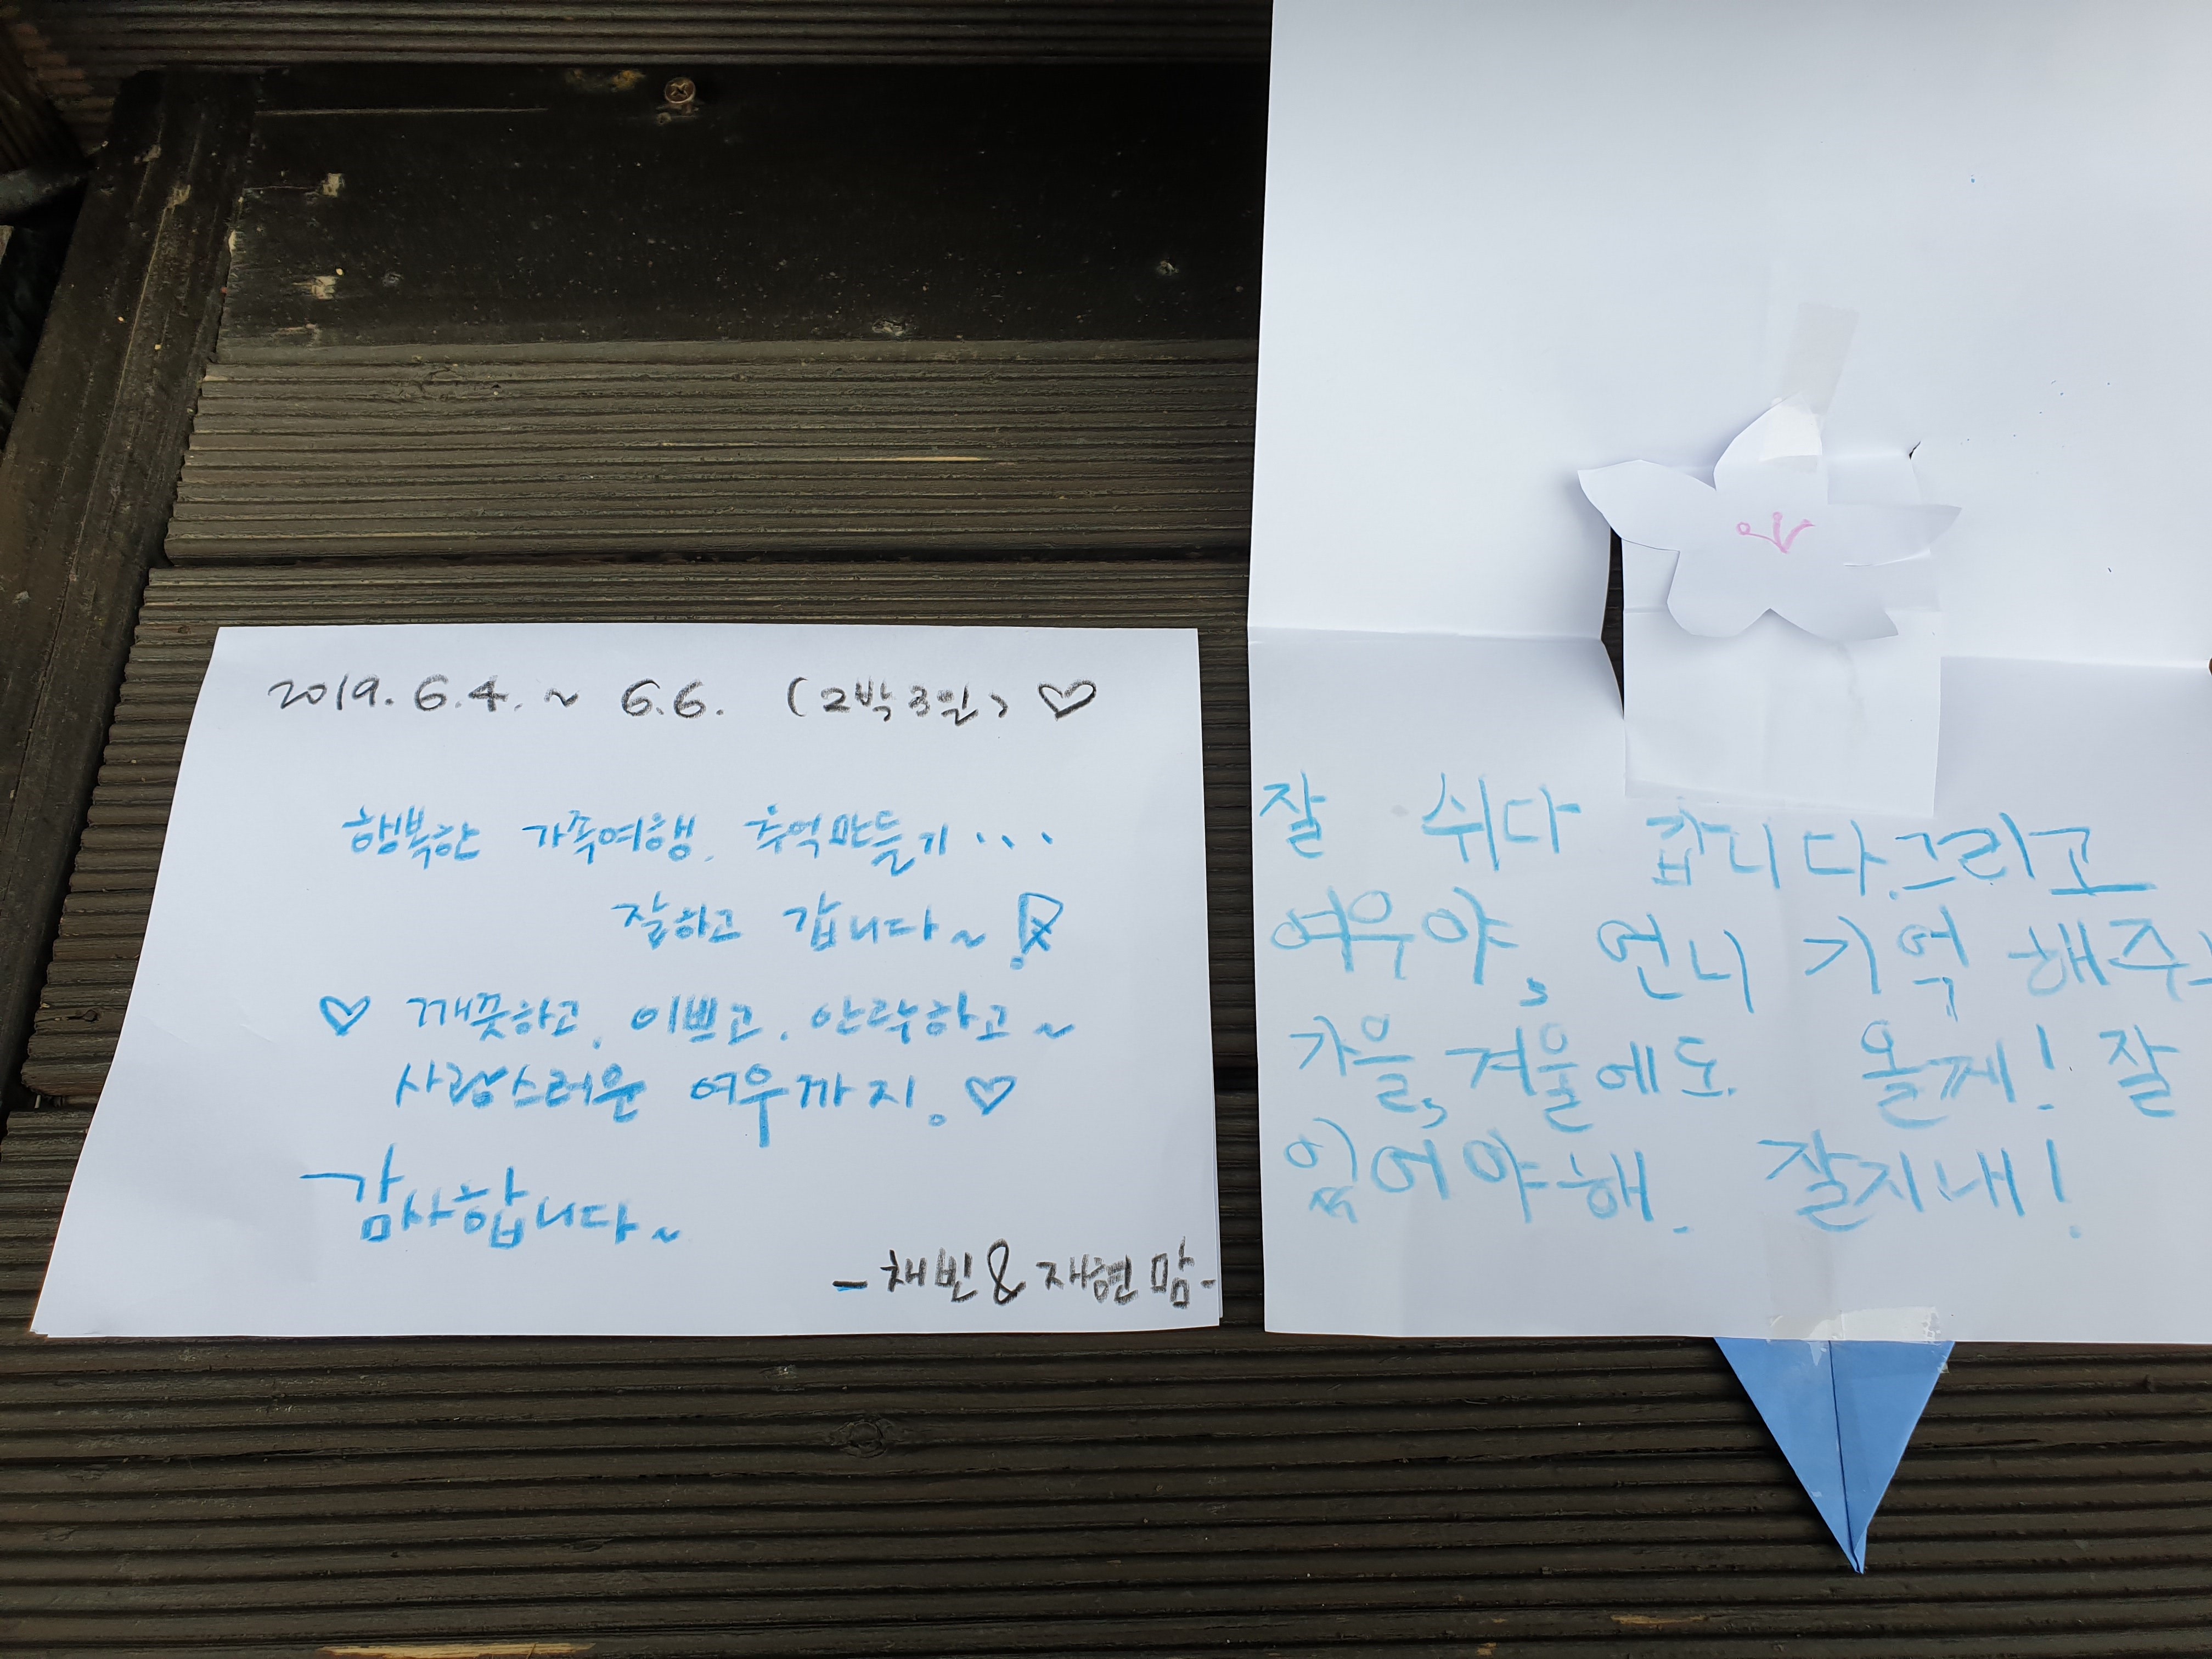 2019. 6.4. ~ 6.6. (2박3일) ♡
행복한 가족여행, 추억만들기...
잘하고 갑니다~!
♡ 깨끗하고, 이쁘고, 안락하고~
사랑스러운 여우까지. ♡
감사합니다~
- 채빈 & 재현맘 -
잘 쉬다 갑니다. 그리고
여우야, 언니 기억 해주
가을, 겨울에도 올게! 잘
있어야해. 잘지내!